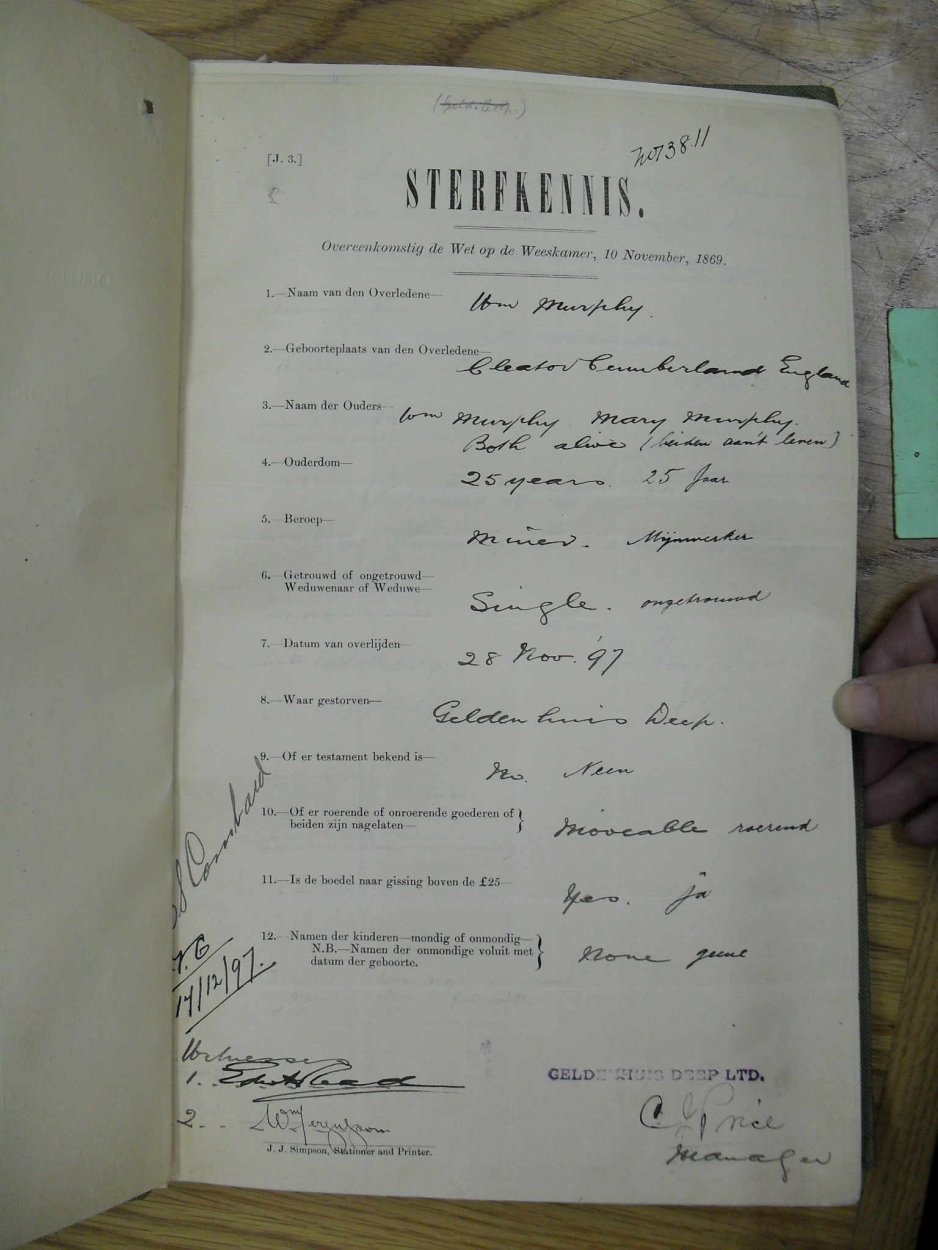 No 3811
[J. 3.]
STERFKENNIS.
Overeenkomstig de Wet op de Weeskamer, 10 November, 1869.
1.—Naam van den Overledene— Wm Murphy.
2.—Geboorteplaats van den Overledene— Cleator Cumberland England
3.—Naam der Ouders— Wm Murphy Mary Murphy.
Both alive (beiden aan't leven)
4.—Ouderdom— 25 years. 25 Jaar
5.—Beroep— Miner. Mijnwerker
6.—Getrouwd of ongetrouwd—
Weduwenaar of Weduwe— Single. ongetrouwd
7.—Datum van overlijden— 28 Nov. '97
8.—Waar gestorven— Geldenhuis Deep.
9.—Of er testament bekend is— No. Neen
10.—Of er roerende of onroerende goederen of
beiden zijn nagelaten— Moveable roerend
11.—Is de boedel naar gissing boven de £25— Yes. ja
12.—Namen der kinderen—mondig of onmondig—
N.B.—Namen der onmondige voluit met
datum der geboorte. None geene
14/12/97.
Witnesses
1.
2. Wm Ferguson
GELDENHUIS DEEP LTD.
C Price
Manager
J. J. Simpson, Stationer and Printer.